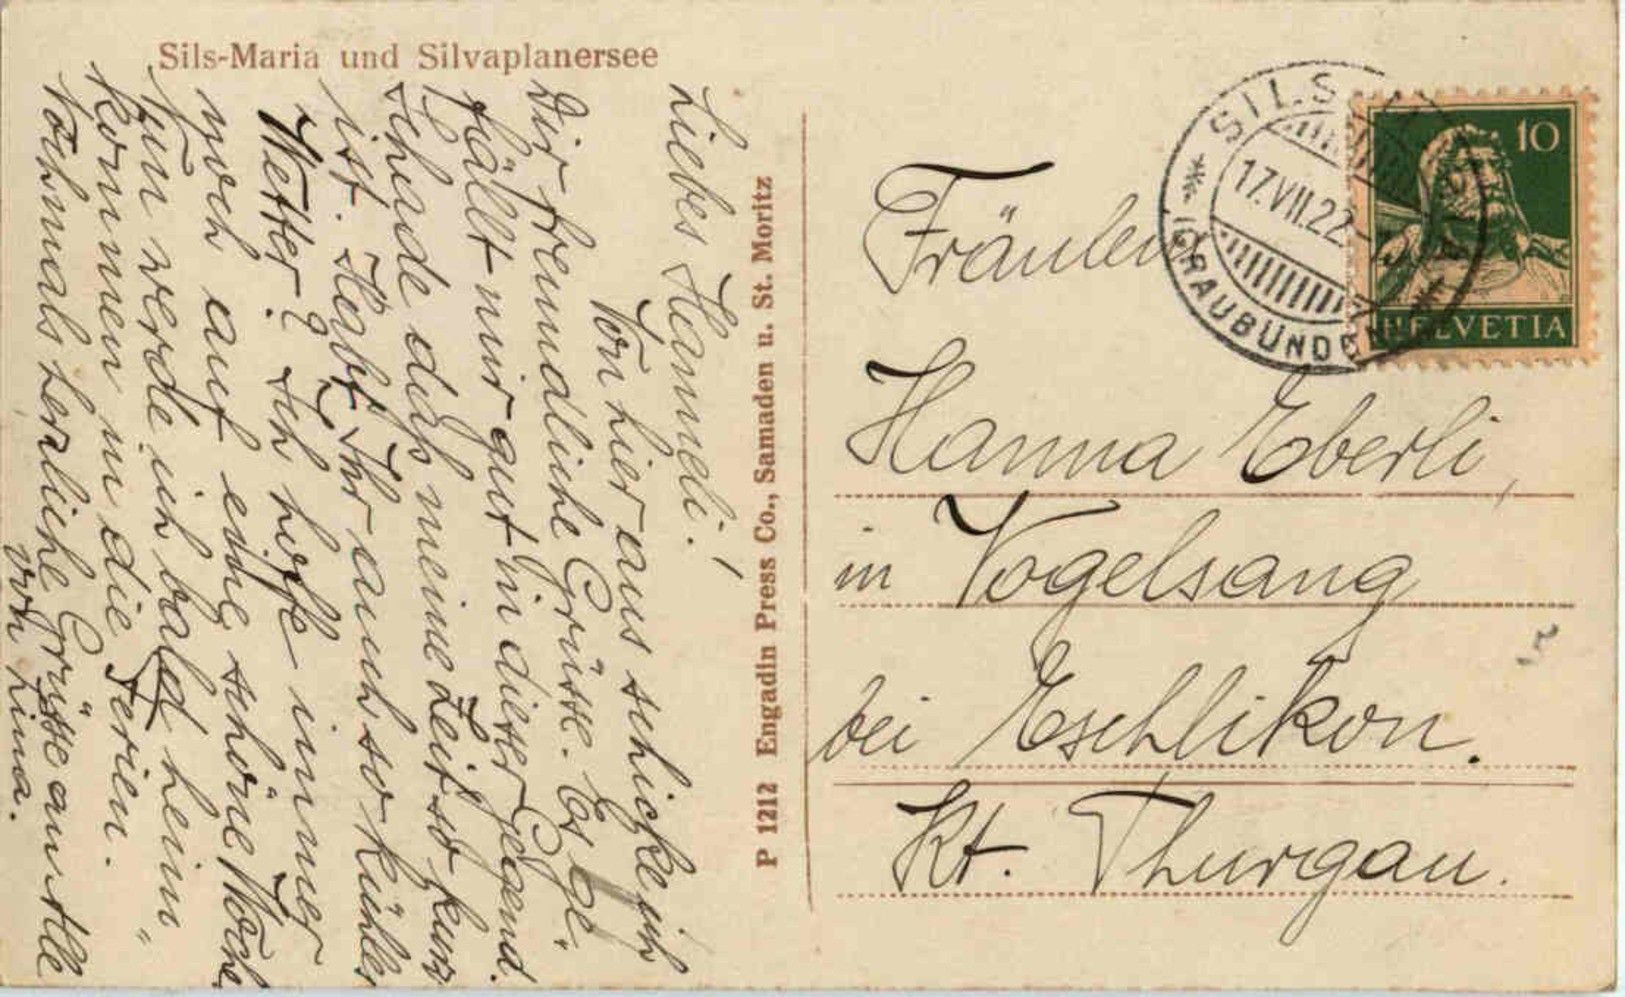 Sils-Maria und Silvaplanersee
Liebes Hanneli!
Von hier aus schicke ich
Dir freundliche Grüsse. Es ge-
fällt mir gut in dieser Gegend.
Schade daß meine Zeit so kurz
ist. Habt Ihr auch so kühles
Wetter? Ich hoffe immer
noch auf eine schöne Woche
Nun werde ich bald heim-
kommen in die Ferien.
Nochmals herzliche Grüsse an Alle
von Lina.
P 1212 Engadin Press Co., Samaden u. St. Moritz
SILS
17.VII.22
(GRAUBÜNDEN)
10
HELVETIA
Fräulein
Hanna Eberli,
in Vogelsang
bei Eschlikon.
Kt. Thurgau.